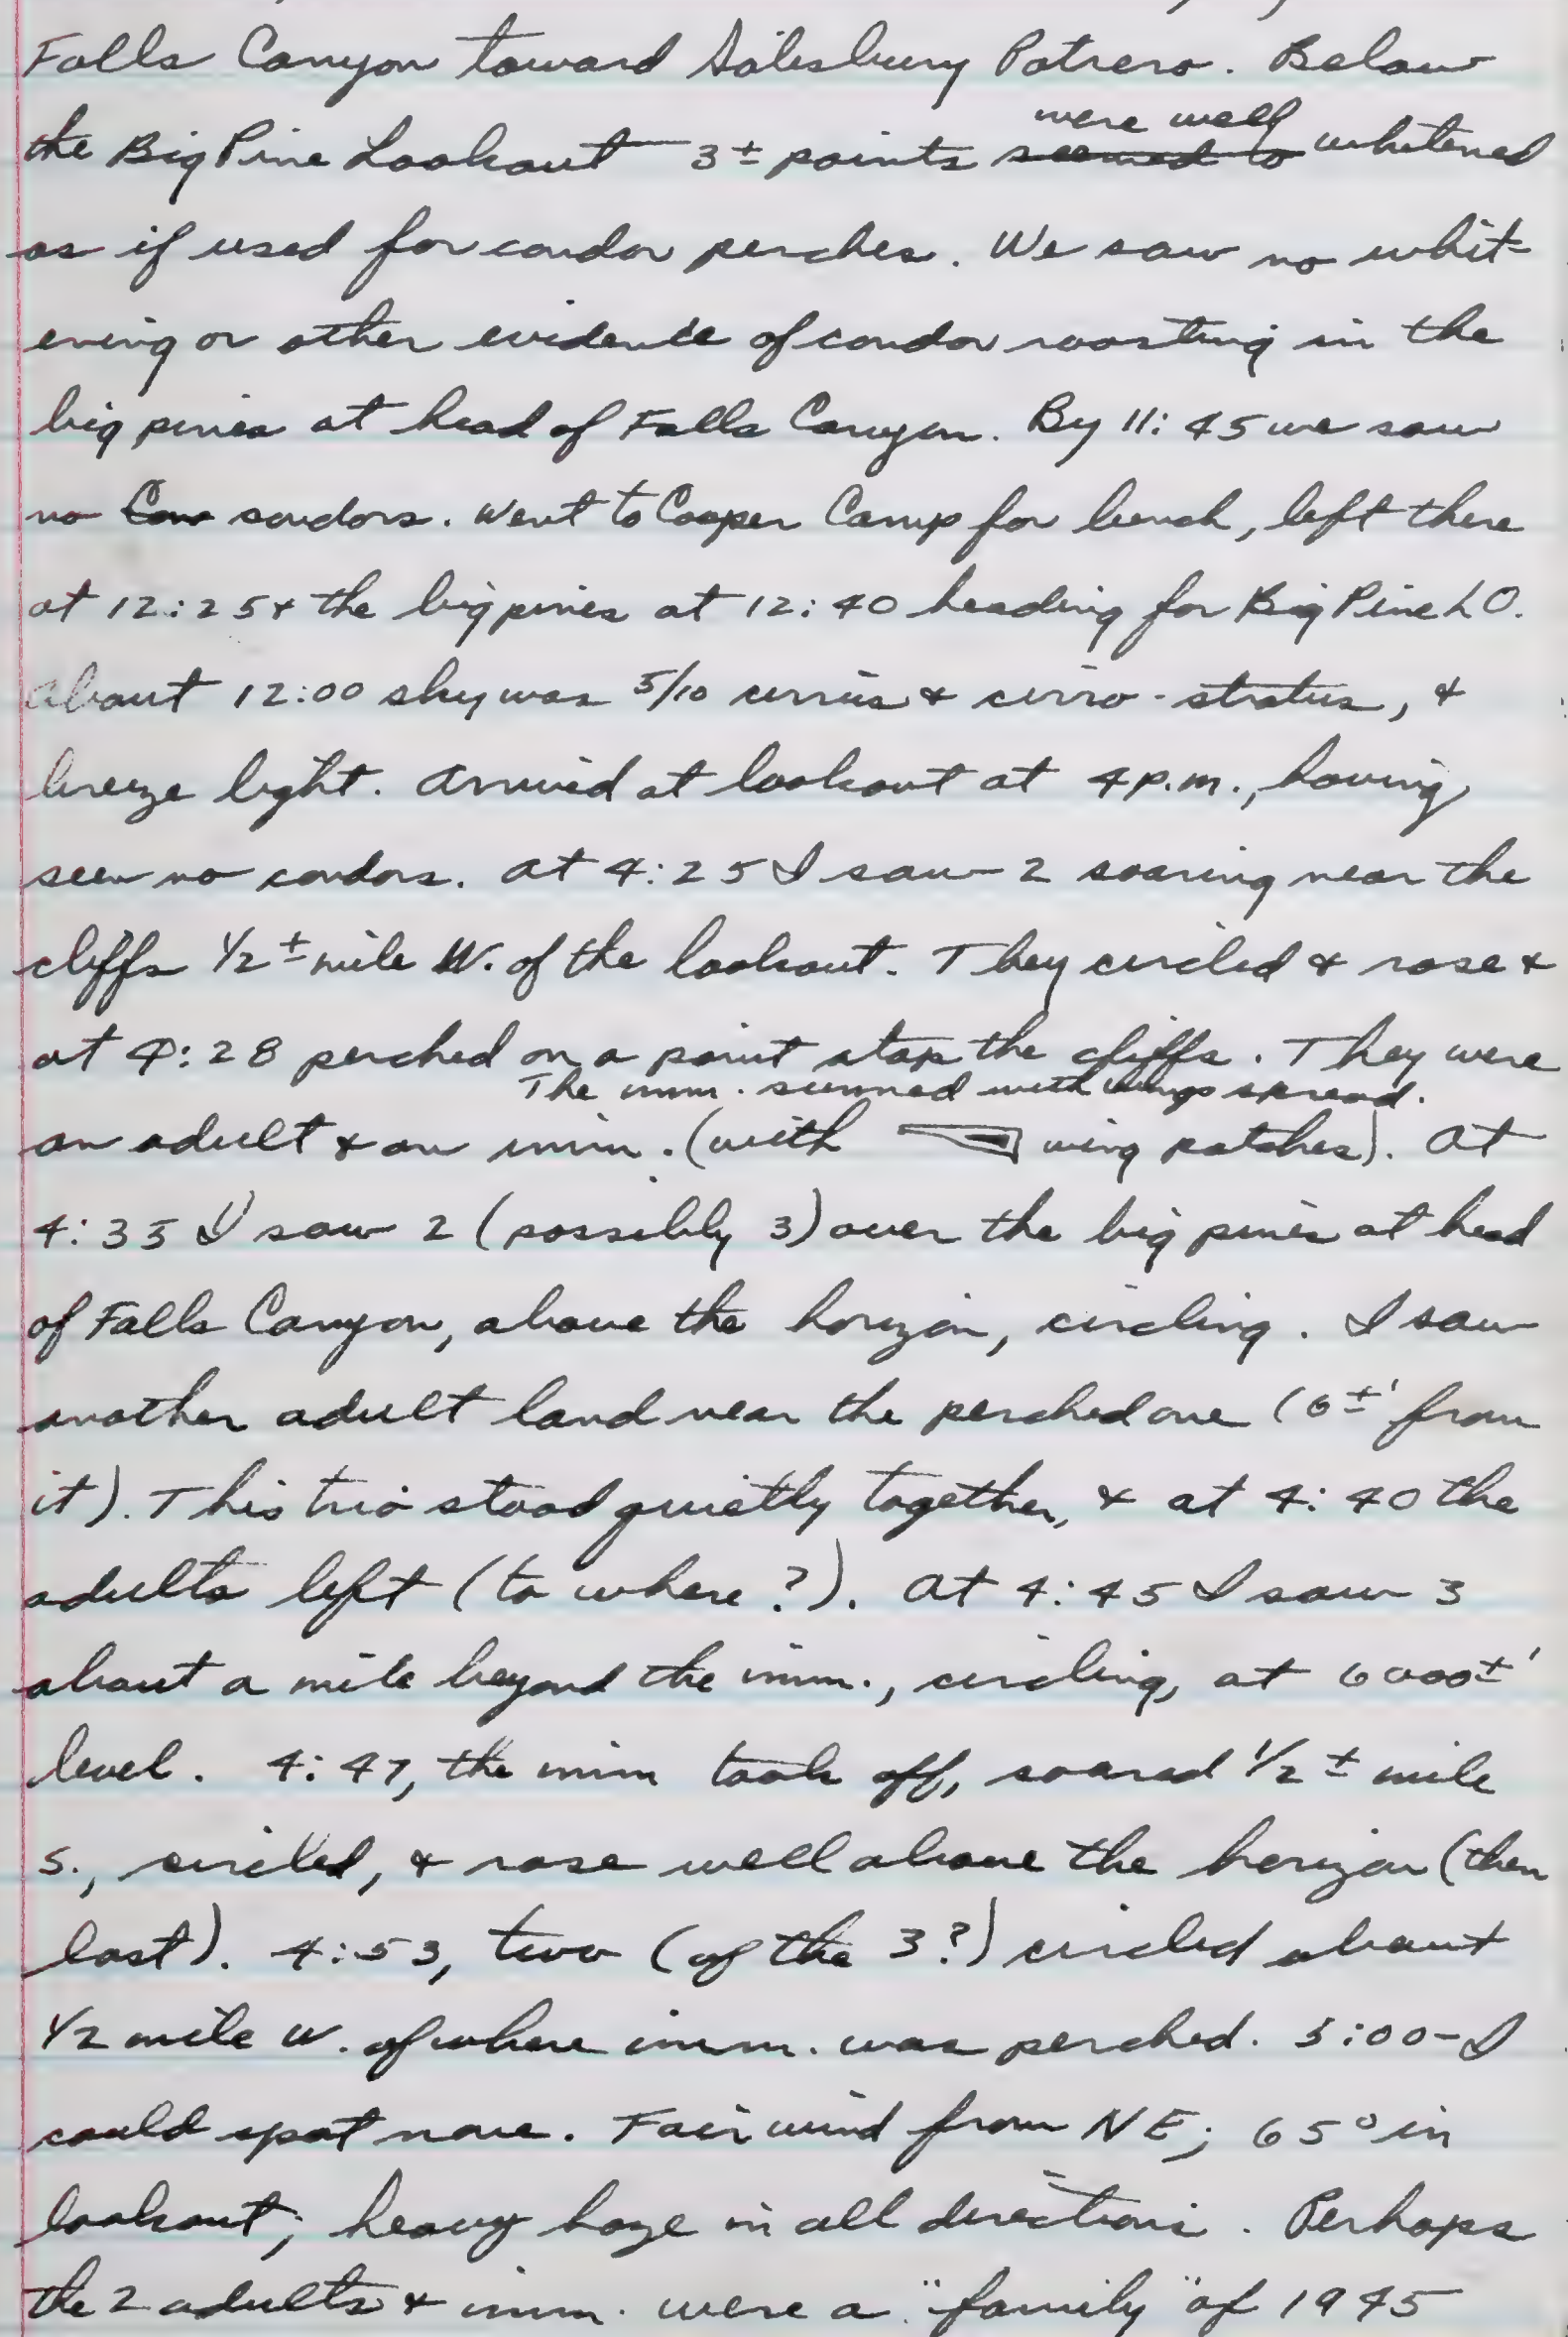 Falls Canyon toward Salisbury Potrero. Below
were well
the Big Pine Lookout 3± points seemed to whitened
as if used for condor perches. We saw no whit-
ening or other evidence of condor roosting in the
big pines at head of Falls Canyon. By 11:45 we saw
no Con condors. Went to Cooper Camp for lunch, left there
at 12:25 & the big pines at 12:40 heading for Big Pine L O.
About 12:00 sky was 5/10 cirrus & cirro-stratus, &
breeze light. Arrived at lookout at 4 p.m., having
seen no condors. At 4:25 I saw 2 soaring near the
cliffs 1/2± mile W. of the lookout. They circled & rose &
at 4:28 perched on a point atop the cliffs. They were
The imm. sunned with wings spread.
an adult & an imm. (with wing patches). At
4:35 I saw 2 (possibly 3) over the big pines at head
of Falls Canyon, above the horizon, circling. I saw
another adult land near the perched one (6±' from
it). This trio stood quietly together, & at 4:40 the
adults left (to where?). At 4:45 I saw 3
about a mile beyond the imm., circling, at 6000±'
level. 4:47, the imm took off, soared 1/2± mile
S., circled, & rose well above the horizon (then
lost). 4:53, two (of the 3?) circled about
1/2 mile W. of where imm. was perched. 5:00- I
could spot none. Fair wind from NE; 65° in
lookout; heavy haze in all directions. Perhaps
the 2 adults & imm. were a "family" of 1945